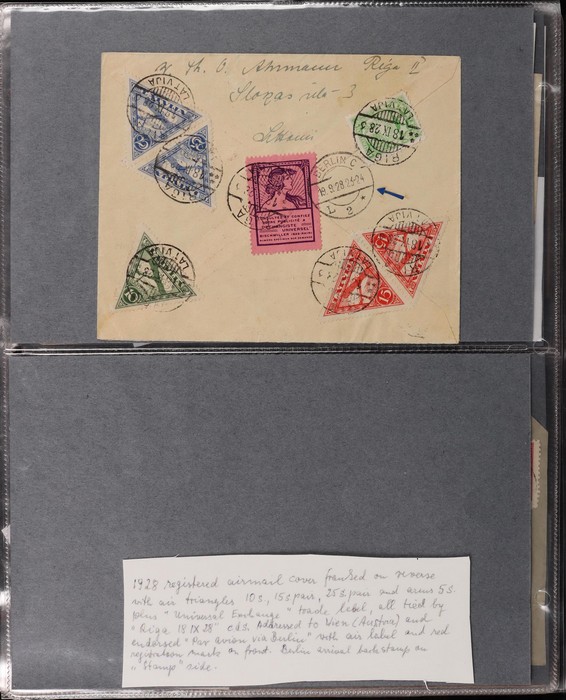 Th. O. Ahrmann Riga II
iela 3
LATVIJA
RIGA
18 IX 28-3
LATVIJA
RIGA
LATVIJA
BERLIN C
19.9.28.23-24
2
UNIVERSEL
RIGA
LATVIJA
15
LATVIJA
15
1928 registered airmail cover franked on reverse
with air triangles 10 s., 15 s. pair, 25 s. pair and arms 5 s.
plus "Universal Exchange" trade label, all tied by
"Riga 18 IX 28" cds. Addressed to Wien (Austria) and
endorsed "Par avion via Berlin" with air label and red
registration marks on front. Berlin arrival backstamp on
"Stamps" side.